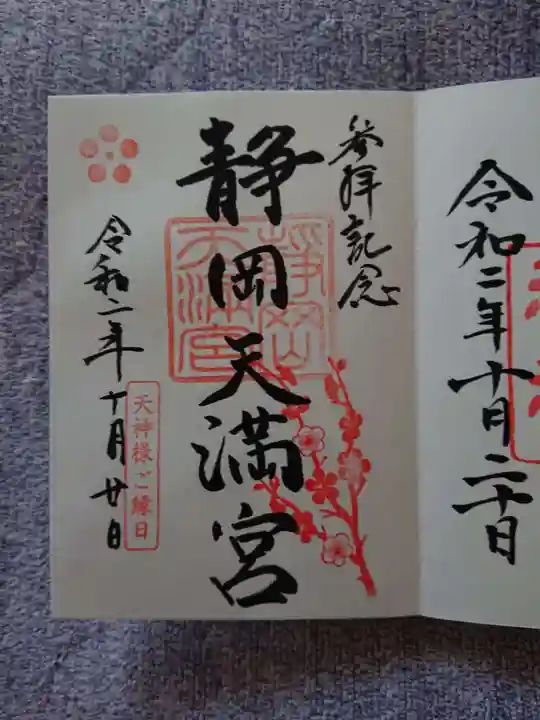 令和二年十月二十日
参拝記念
静岡天満宮
靜岡天満宮
令和二年十月廿日
天神様ご縁日